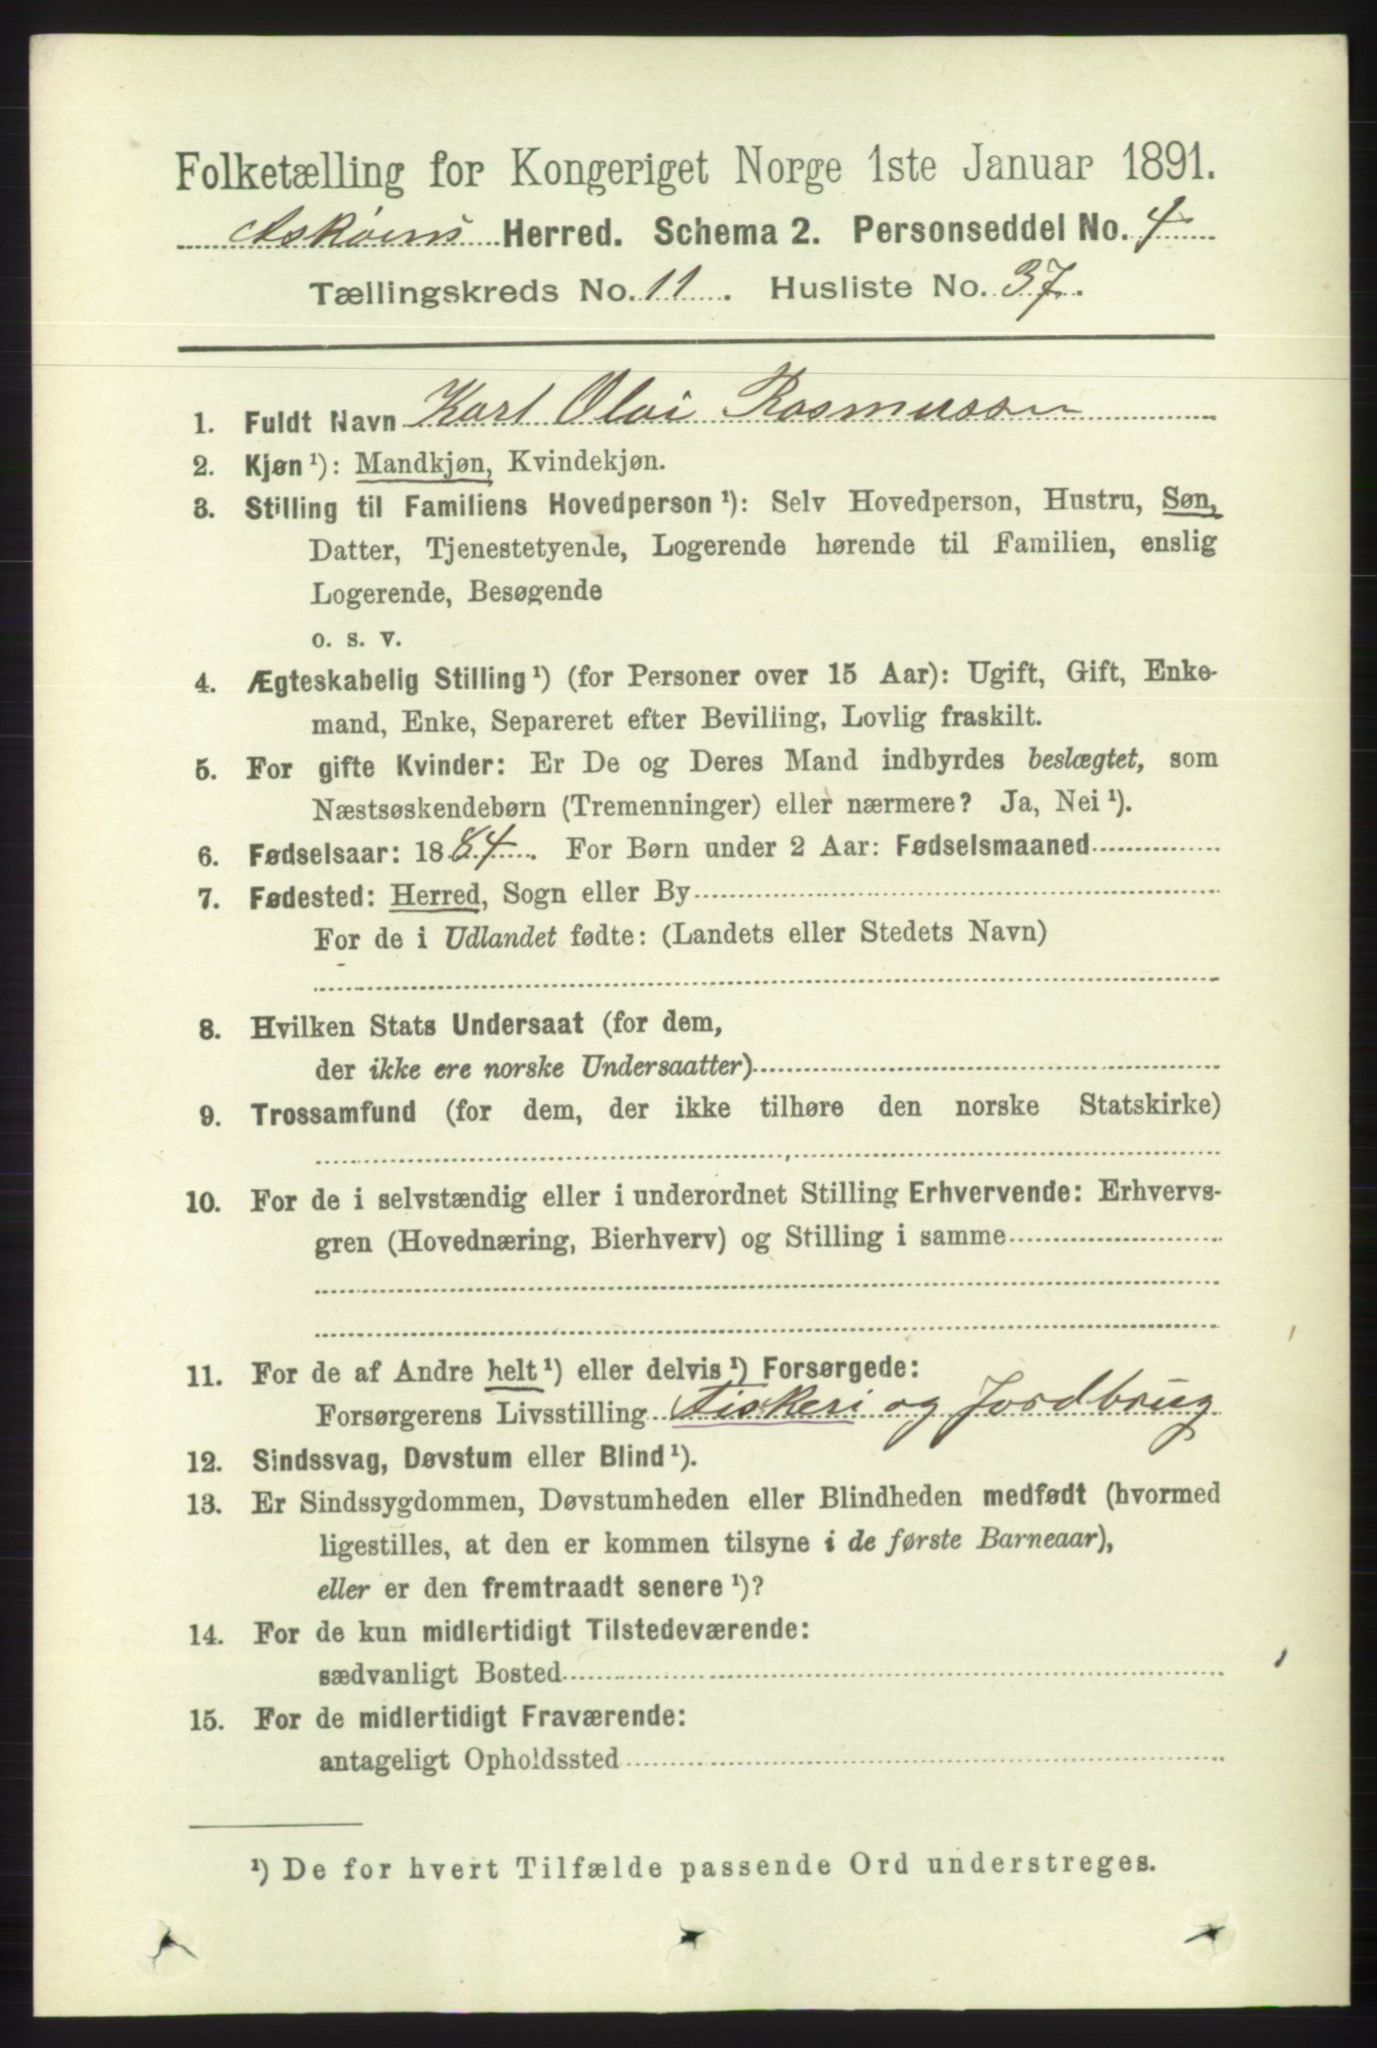 Folketælling for Kongeriget Norge 1ste Januar 1891.
Askøens Herred. Schema 2. Personseddel No. 4
Tællingskreds No. 11. Husliste No. 37.
1. Fuldt Navn Karl Olai Rasmussen
2. Kjøn¹): Mandkjøn, Kvindekjøn.
3. Stilling til Familiens Hovedperson¹): Selv Hovedperson, Hustru, Søn,
Datter, Tjenestetyende, Logerende hørende til Familien, enslig
Logerende, Besøgende
o. s. v.
4. Ægteskabelig Stilling¹) (for Personer over 15 Aar): Ugift, Gift, Enke-
mand, Enke, Separeret efter Bevilling, Lovlig fraskilt.
5. For gifte Kvinder: Er De og Deres Mand indbyrdes beslægtet, som
Næstsøskendebørn (Tremenninger) eller nærmere? Ja, Nei¹).
6. Fødselsaar: 1884. For Børn under 2 Aar: Fødselsmaaned
7. Fødested: Herred, Sogn eller By
For de i Udlandet fødte: (Landets eller Stedets Navn)
8. Hvilken Stats Undersaat (for dem,
der ikke ere norske Undersaatter)
9. Trossamfund (for dem, der ikke tilhøre den norske Statskirke)
10. For de i selvstændig eller i underordnet Stilling Erhvervende: Erhvervs-
gren (Hovednæring, Bierhverv) og Stilling i samme
11. For de af Andre helt¹) eller delvis¹) Forsørgede:
Forsørgerens Livsstilling Fiskeri og Jordbrug
12. Sindssvag, Døvstum eller Blind¹).
13. Er Sindssygdommen, Døvstumheden eller Blindheden medfødt (hvormed
ligestilles, at den er kommen tilsyne i de første Barneaar),
eller er den fremtraadt senere¹)?
14. For de kun midlertidigt Tilstedeværende:
sædvanligt Bosted
15. For de midlertidigt Fraværende:
antageligt Opholdssted
¹) De for hvert Tilfælde passende Ord understreges.